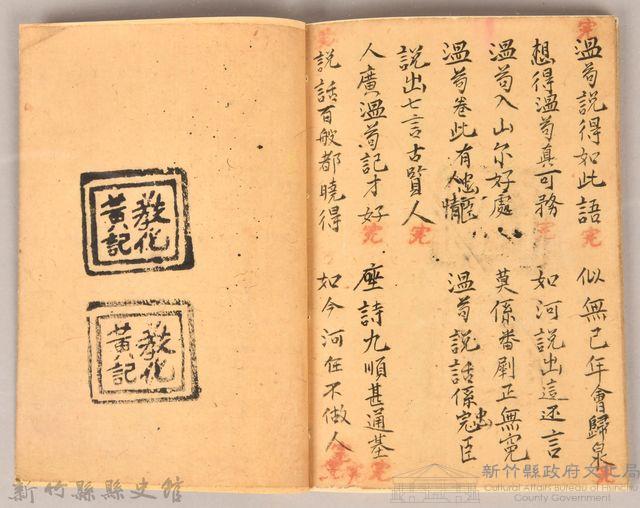 温荀說得如此語 似無已年會歸泉
想得温荀真可務 如河說出這还言
温荀入山尔好處 莫係番剧正無寃
温荀卷此有人 温荀說話係忠臣
說出七言古賢人
人廣温荀記才好 座詩九順甚通基
說話百般都曉得 如今河在不做人
完
完
完
完
完
完
教化
黃記
教化
黃記
新竹縣縣史館
新竹縣政府文化局
Cultural Affairs Bureau of Hsinchu
County Government